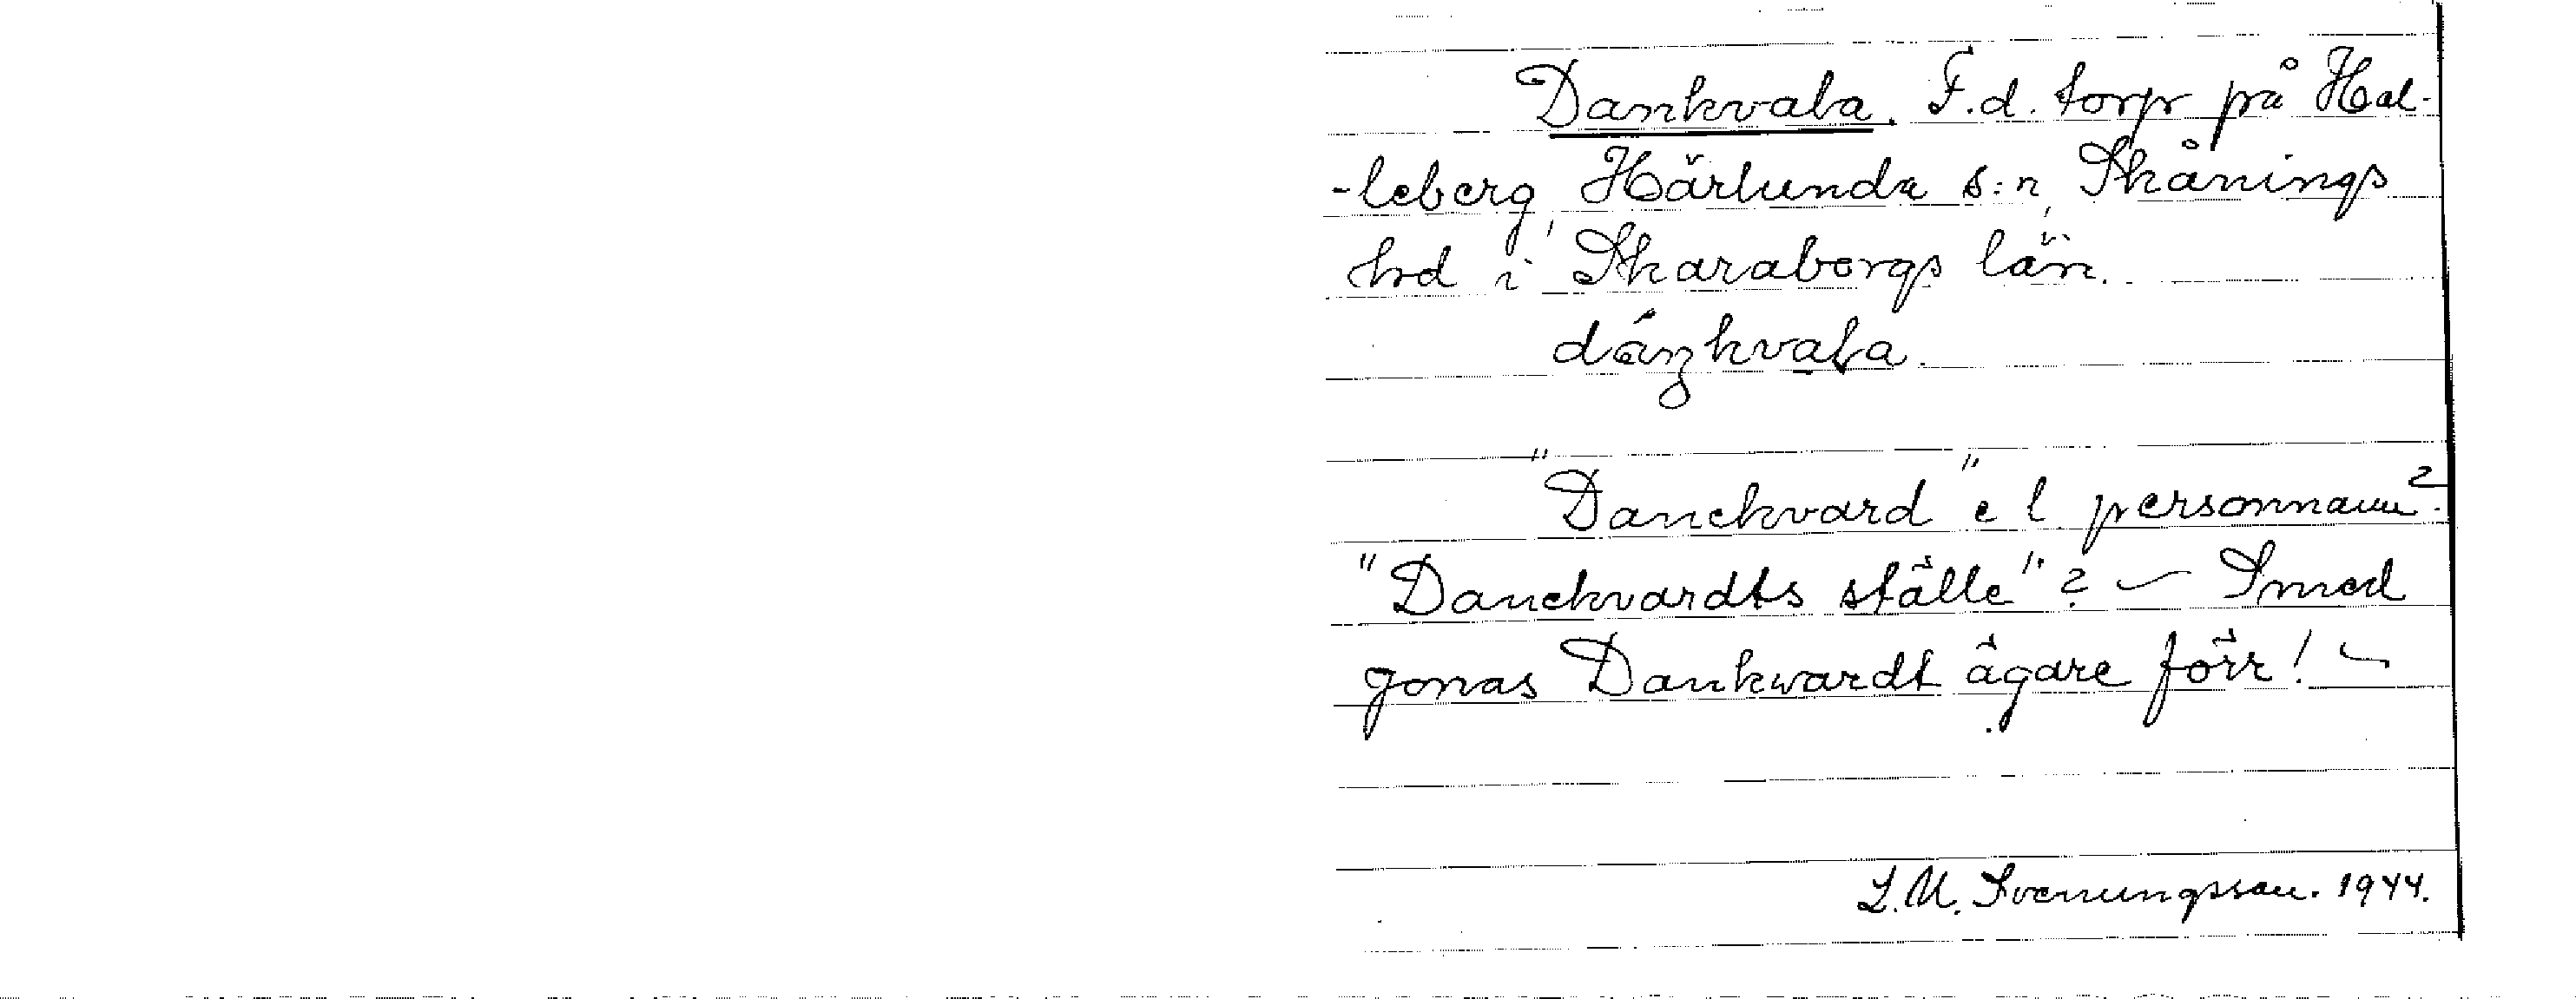 Dankvata. F.d. torp på Hal-
-leberg, Härlunda s:n, Skånings
hrd i Skaraborgs län.
dáŋkvata.
"Danckvard" e l personnamn?
"Danckvardts ställe"? – Smed
Jonas Dankwardt ägare förr! –
L.M. Svenungsson. 1944.